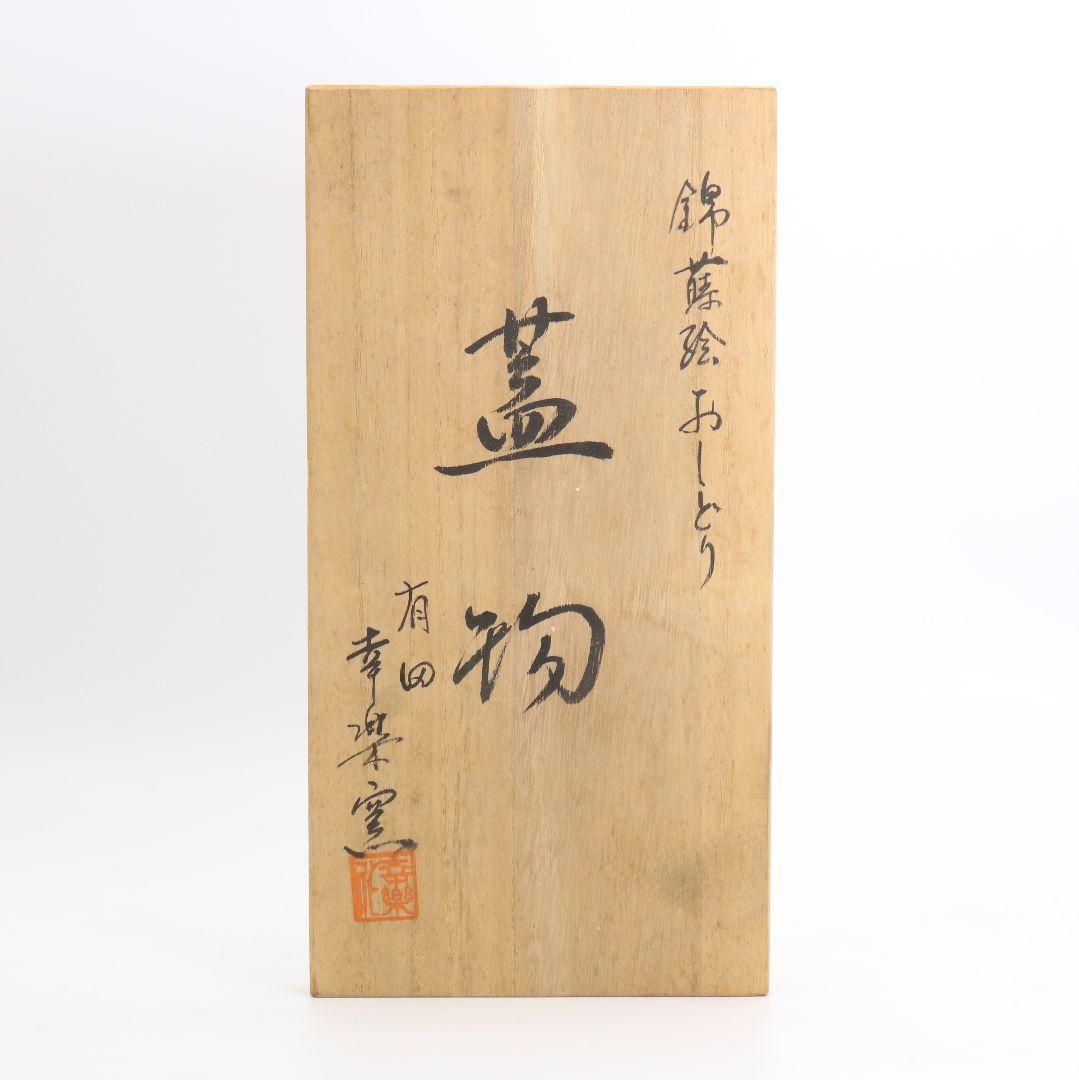 錦蒔絵おしどり
蓋物
有田
幸楽窯
幸樂